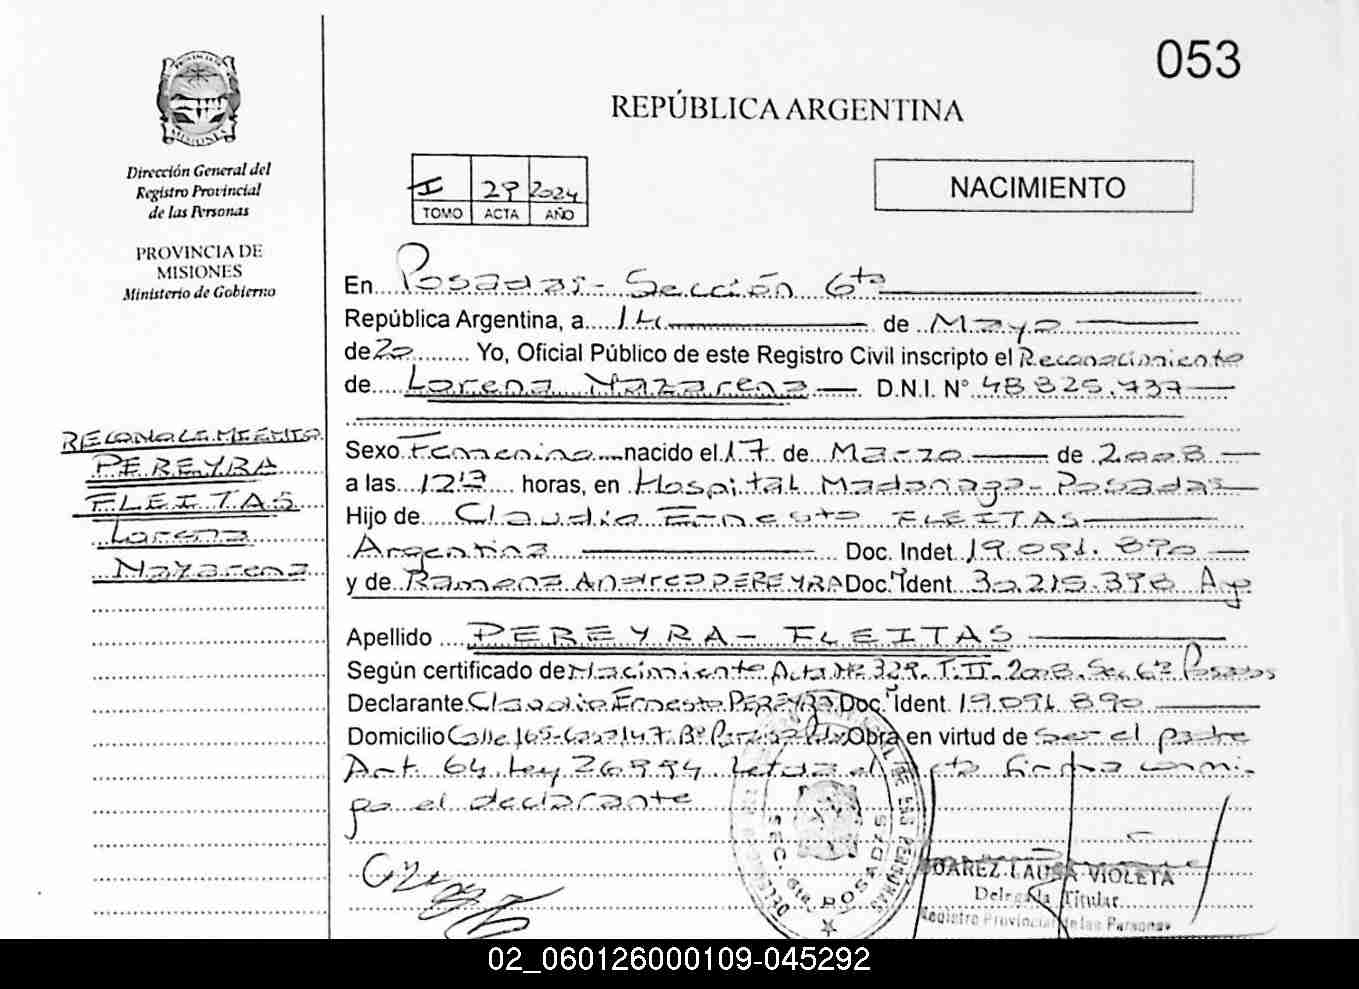 053
REPÚBLICA ARGENTINA
Dirección General del
Registro Provincial
de las Personas
PROVINCIA DE
MISIONES
Ministerio de Gobierno
I 29 2024
TOMO ACTA AÑO
NACIMIENTO
En Posadas - Sección 6ta
República Argentina, a 14 de Mayo
de 20 Yo, Oficial Público de este Registro Civil inscripto el Reconocimiento
de Lorena Nazarena D.N.I. N° 48.825.737
Sexo Femenino nacido el 17 de Marzo de 2008
a las 12 horas, en Hospital Madariaga - Posadas
Hijo de Claudio Ernesto FLEITAS
Argentina Doc. Indet 19.091.890
y de Ramona Andrea PEREYRA Doc. Ident 30.215.398 Arg
Apellido PEREYRA - FLEITAS
Según certificado de Nacimiento Acta Nº 329. T. II. 2008. Sec 6ta Posadas
Declarante Claudio Ernesto PEREYRA Doc. Ident 19.091.890
Domicilio Calle 165 - Casa 147 Bº Obra en virtud de ser el padre
Art. 64 Ley 26.994 el firma conmi-
go el declarante
RECONOCIMIENTO
PEREYRA
FLEITAS
Lorena
Nazarena
SEC. 6ta. POSADAS
JUAREZ LAURA VIOLETA
Delegada Titular
Registro Provincial de las Personas
02_060126000109-045292